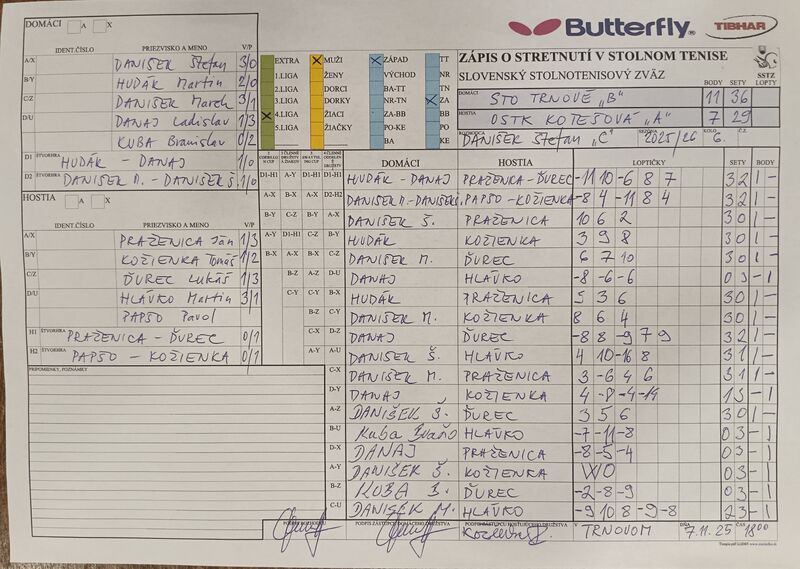 DOMÁCI A X
Butterfly TIBHAR
IDENT.ČÍSLO PRIEZVISKO A MENO V/P
A/X DANIŠEK Štefan 3/0
B/Y HUDÁK Martin 2/0
C/Z DANIŠEK Marek 3/1
D/U DANAJ Ladislav 1/3
KUBA Branislav 0/2
D1 ŠTVORHRA HUDÁK - DANAJ 1/0
D2 ŠTVORHRA DANIŠEK M. - DANIŠEK Š. 1/0
HOSTIA A X
IDENT.ČÍSLO PRIEZVISKO A MENO V/P
A/X PRAŽENICA Ján 1/3
B/Y KOŽIENKA Tomáš 1/2
C/Z ĎUREC Lukáš 1/3
D/U HLÁVKO Martin 3/1
PAPŠO Pavol
H1 ŠTVORHRA PRAŽENICA - ĎUREC 0/1
H2 ŠTVORHRA PAPŠO - KOŽIENKA 0/1
PRIPOMIENKY, POZNÁMKY
EXTRA MUŽI ZÁPAD TT
1.LIGA ŽENY VÝCHOD NR
2.LIGA DORCI BA-TT TN
3.LIGA DORKY NR-TN ZA
4.LIGA ŽIACI ZA-BB BB
5.LIGA ŽIAČKY PO-KE PO
BA KE
ZÁPIS O STRETNUTÍ V STOLNOM TENISE
SLOVENSKÝ STOLNOTENISOVÝ ZVÄZ SSTZ
BODY SETY LOPTY
DOMÁCI STO TRNOVÉ „B" 11 36
HOSTIA OSTK KOTEŠOVÁ „A" 7 29
ROZHODCA DANIŠEK Štefan „C" SEZÓNA 2025/26 KOLO 6. Č.Z.
DOMÁCI HOSTIA LOPTIČKY SETY BODY
HUDÁK - DANAJ PRAŽENICA-ĎUREC -11 10 -6 8 7 3 2 1 -
DANIŠEK M.-DANIŠEK Š. PAPŠO - KOŽIENKA -8 4 -11 8 4 3 2 1 -
DANIŠEK Š. PRAŽENICA 10 6 2 3 0 1 -
HUDÁK KOŽIENKA 3 9 8 3 0 1 -
DANIŠEK M. ĎUREC 6 7 10 3 0 1 -
DANAJ HLÁVKO -8 -6 -6 0 3 - 1
HUDÁK PRAŽENICA 5 3 6 3 0 1 -
DANIŠEK M. KOŽIENKA 8 6 4 3 0 1 -
DANAJ ĎUREC -8 8 -9 7 9 3 2 1 -
DANIŠEK Š. HLÁVKO 4 10 -16 8 3 1 1 -
DANIŠEK M. PRAŽENICA 3 -6 4 6 3 1 1 -
DANAJ KOŽIENKA 4 -8 -4 -14 1 3 - 1
DANIŠEK Š. ĎUREC 3 5 6 3 0 1 -
Kuba Braňo HLÁVKO -7 -11 -8 0 3 - 1
DANAJ PRAŽENICA -8 -5 -4 0 3 - 1
DANIŠEK Š. KOŽIENKA WO 0 3 - 1
KUBA B. ĎUREC -2 -8 -9 0 3 - 1
DANIŠEK M. HLÁVKO -9 10 8 -9 -8 2 3 - 1
PODPIS ROZHODCU PODPIS ZÁSTUPCU DOMÁCEHO DRUŽSTVA PODPIS ZÁSTUPCU HOSŤUJÚCEHO DRUŽSTVA V TRNOVOM DŇA 7.11.25 ČAS 18 00